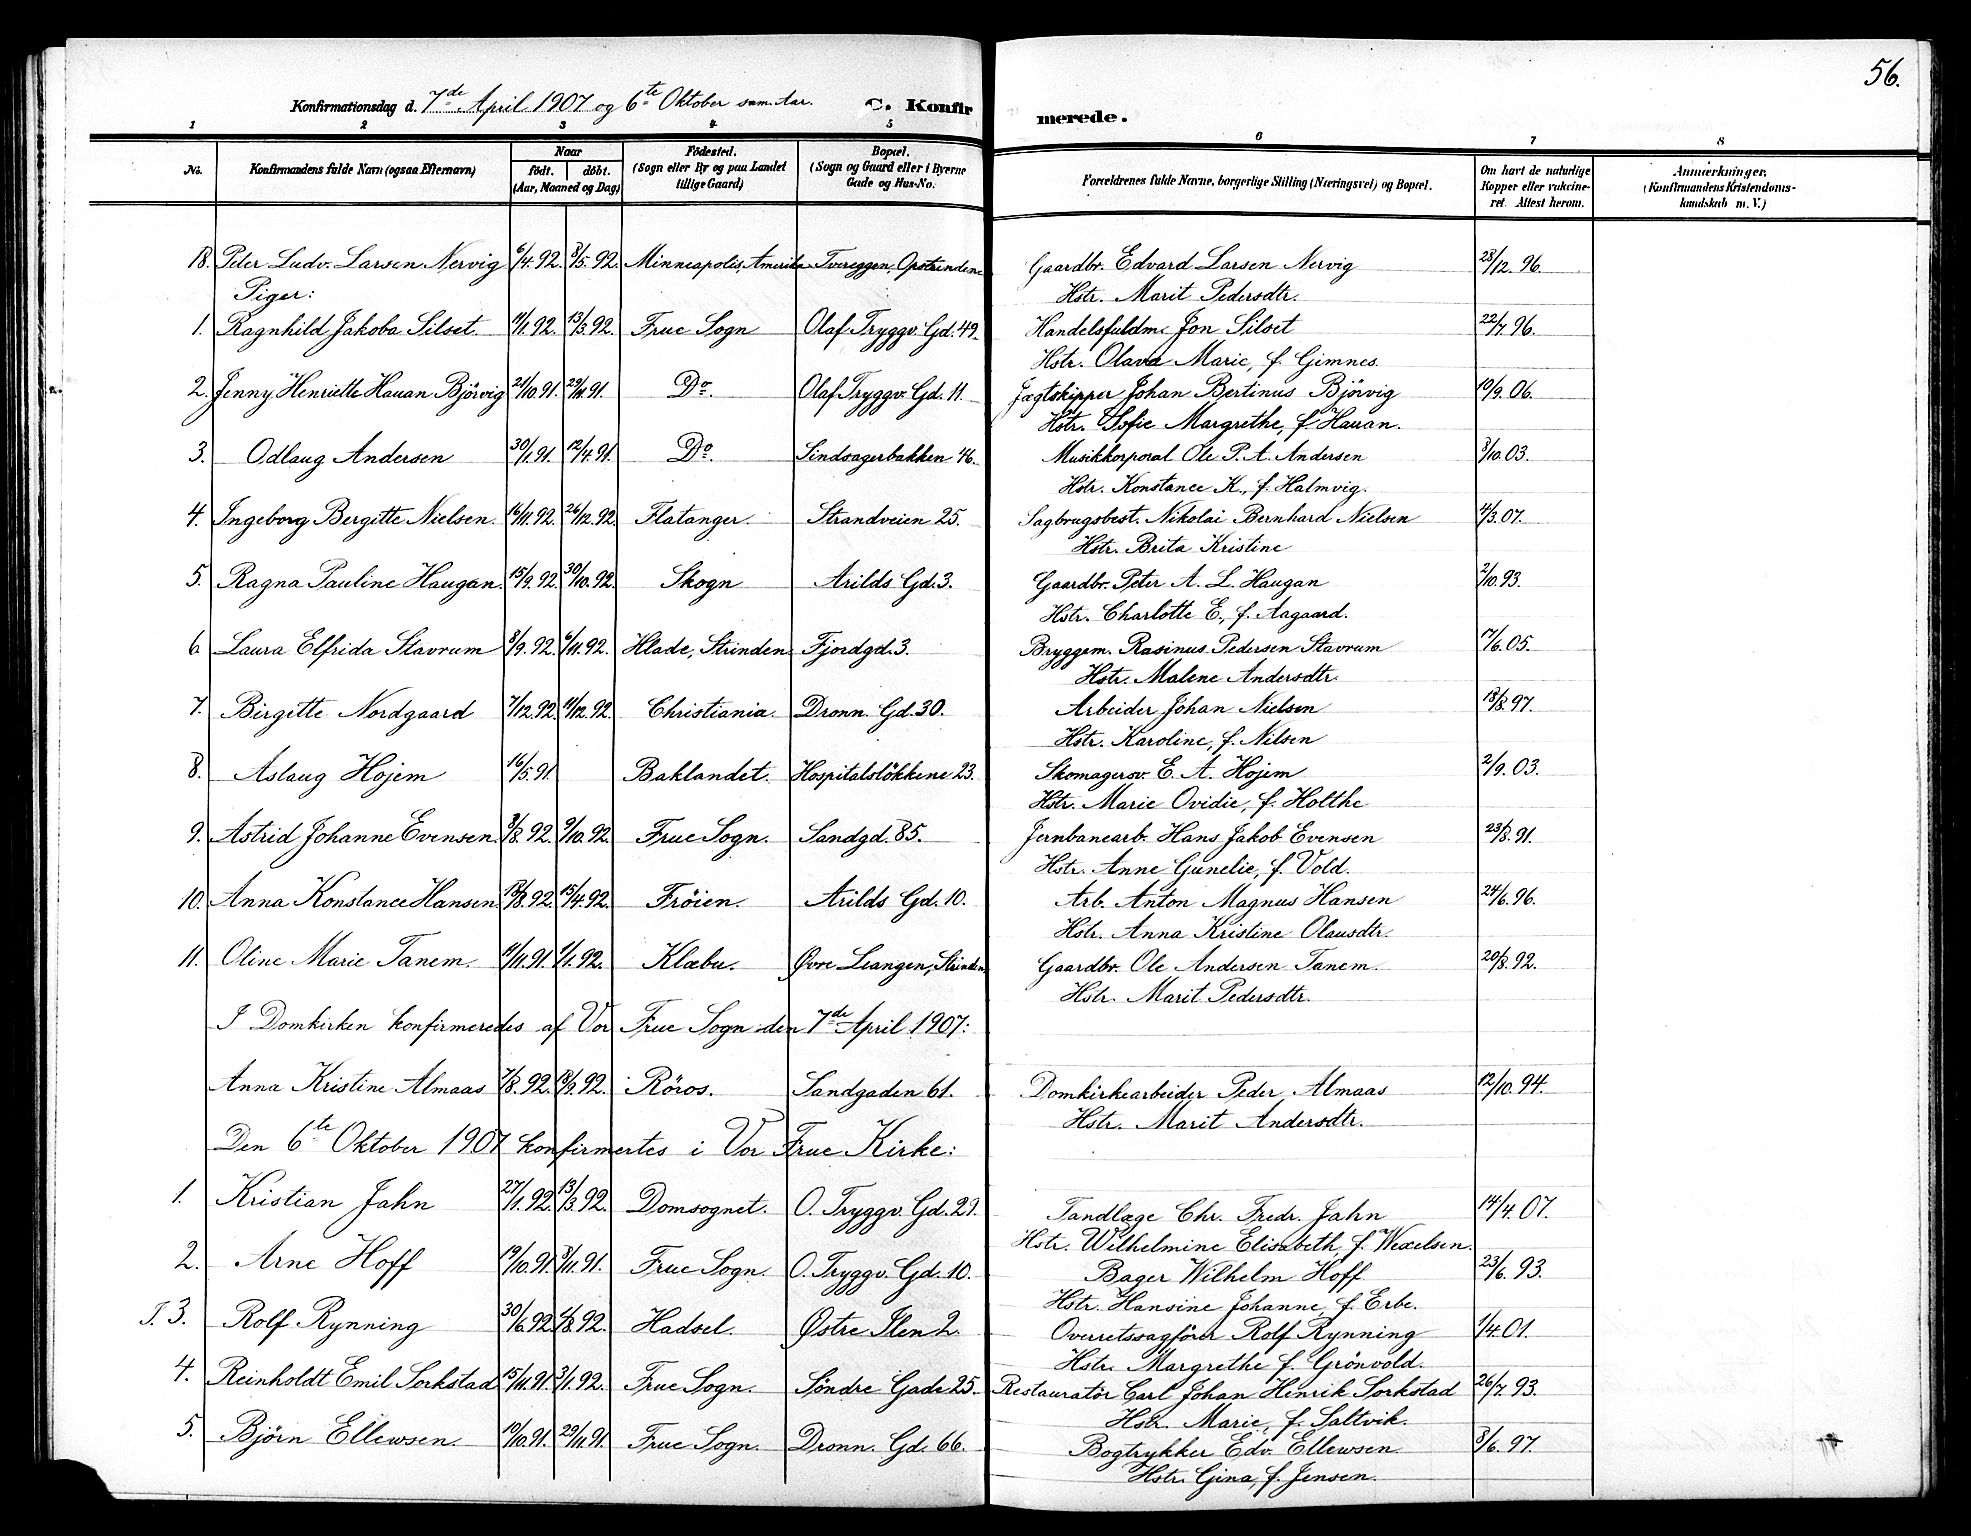 56.
Konfirmationsdag d. 7de April 1907 og 6te Oktober sam. Aar. C. Konfirmerede.
1 2 3 4 5 6 7 8
No. Konfirmandens fulde Navn (ogsaa Efternavn) Naar født. døbt. (Aar, Maaned og Dag) Fødested. (Sogn eller By og paa Landet tillige Gaard) Bopæl. (Sogn og Gaard eller i Byerne Gade og Hus-No. Forældrenes fulde Navne, borgerlige Stilling (Næringsvei) og Bopæl. Om havt de naturlige Kopper eller vakcineret. Attest herom. Anmærkninger. (Konfirmandens Kristendomskundskab m. V.)
18. Peter Ludv. Larsen Nervig 6/4.92. 8/5.92. Minneapolis, Amerika Tvereggen, Opstrindene Gaardbr. Edvard Larsen Nervig 28/12.96.
Hstr. Marit Pedersdtr.
Piger:
1. Ragnhild Jakoba Silset. 11/1.92. 13/3.92. Frue Sogn Olaf Tryggv. Gd. 49. Handelsfuldm. Jon Silset 22/7.96.
Hstr. Olava Marie, f. Gimnes.
2. Jenny Henriette Hauan Bjørvig 21/10.91. 29/11.91. Do. Olaf Tryggv. Gd. 11. Jægtskipper Johan Bertinus Bjørvig 10/9.06.
Hstr. Sofie Margrethe, f. Hauan.
3. Odlaug Andersen 30/1.91. 12/4.91. Do. Sindsagerbakken 46. Musikkorporal Ole P. A. Andersen 8/10.03.
Hstr. Konstance K., f. Halmvig.
4. Ingeborg Bergitte Nielsen. 16/11.92. 26/12.92. Flatanger. Strandveien 25. Sagbrugsbest. Nikolai Bernhard Nielsen 4/3.07.
Hstr. Brita Kristine
5. Ragna Pauline Haugan. 15/9.92. 30/10.92. Skogn Arilds Gd. 3. Gaardbr. Peter A. L. Haugan 2/10.93.
Hstr. Charlotte E., f. Aagaard.
6 Laura Elfrida Stavrum 8/9.92. 6/11.92. Hlade, Strinden Fjordgd. 3. Bryggem. Rasinus Pedersen Stavrum 17/6.05.
Hstr. Malene Andersdtr.
7. Birgitte Nordgaard 7/12.92. 11/12.92. Christiania. Dronn. Gd. 30. Arbeider Johan Nielsen 18/8.97.
Hstr. Karoline, f. Nilsen
8. Aslaug Højem 16/5.91. Baklandet. Hospitalsløkkene 23. Skomagersv. E. A. Højem 2/9.03.
Hstr. Marie Ovidie, f. Holthe
9. Astrid Johanne Evensen. 8/8.92. 9/10.92. Frue Sogn. Sandgd. 85. Jernbanearb. Hans Jakob Evensen 23/8.91.
Hstr. Anne Gunelie, f. Vold.
10. Anna Konstance Hansen. 92. 15/4.92. Frøien. Arilds Gd. 10. Arb. Anton Magnus Hansen 24/6.96.
Hstr. Anna Kristine Olausdtr.
11. Oline Marie Tanem. 11/11.91. 1/1.92. Klæbu. Øvre Leangen, Strinden Gaardbr. Ole Andersen Tanem. 20/8.92.
Hstr. Marit Pedersdtr.
I Domkirken konfirmeredes af Vor Frue Sogn den 7de April 1907:
Anna Kristine Almaas 7/8.92. 18/9.92. Røros. Sandgaden 61. Domkirkearbeider Peder Almaas 12/10.94.
Hstr. Marit Andersdtr.
Den 6te Oktober 1907 konfirmertes i Vor Frue Kirke:
1. Kristian Jahn 27/1.92. 13/3.92. Domsognet. O. Tryggv. Gd. 29. Tandlæge Chr. Fredr. Jahn 14/4.07.
Hstr. Wilhelmine Elisabeth, f. Wexelsen.
2. Arne Hoff 19/10.91. 8/11.91. Frue Sogn. O. Tryggv. Gd. 10. Bager Wilhelm Hoff 23/6.93.
Hstr. Hansine Johanne, f. Erbe.
3. Rolf Rynning 30/6.92. 92. Hadsel. Østre Ilen 2. Overretssagfører Rolf Rynning 1/4.01.
Hstr. Margrethe f. Grønvold.
4. Reinholdt Emil Sorkstad 15/11.91. 3/1.92. Frue Sogn. Søndre Gade 25. Restauratør Carl Johan Henrik Sorkstad 26/7.93.
Hstr. Marie, f. Saltvik.
5. Bjørn Ellewsen. 19/10.91. 29/11.91. Frue Sogn. Dronn. Gd. 66. Bogtrykker Edv. Ellewsen 8/6.97.
Hstr. Gina, f. Jensen.